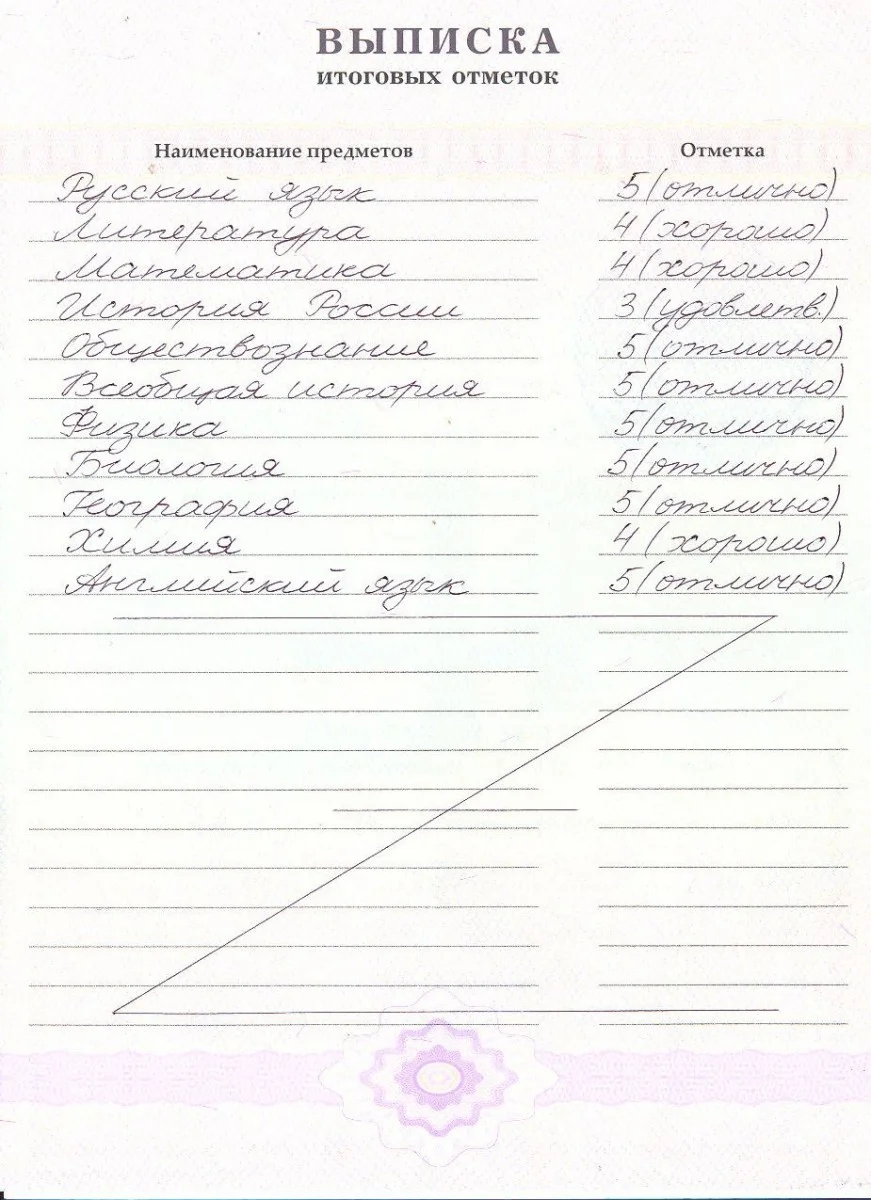 ВЫПИСКА
итоговых отметок
Наименование предметов Отметка
Русский язык 5 (отлично)
Литература 4 (хорошо)
Математика 4 (хорошо)
История России 3 (удовлетв.)
Обществознание 5 (отлично)
Всеобщая история 5 (отлично)
Физика 5 (отлично)
Биология 5 (отлично)
География 5 (отлично)
Химия 4 (хорошо)
Английский язык 5 (отлично)